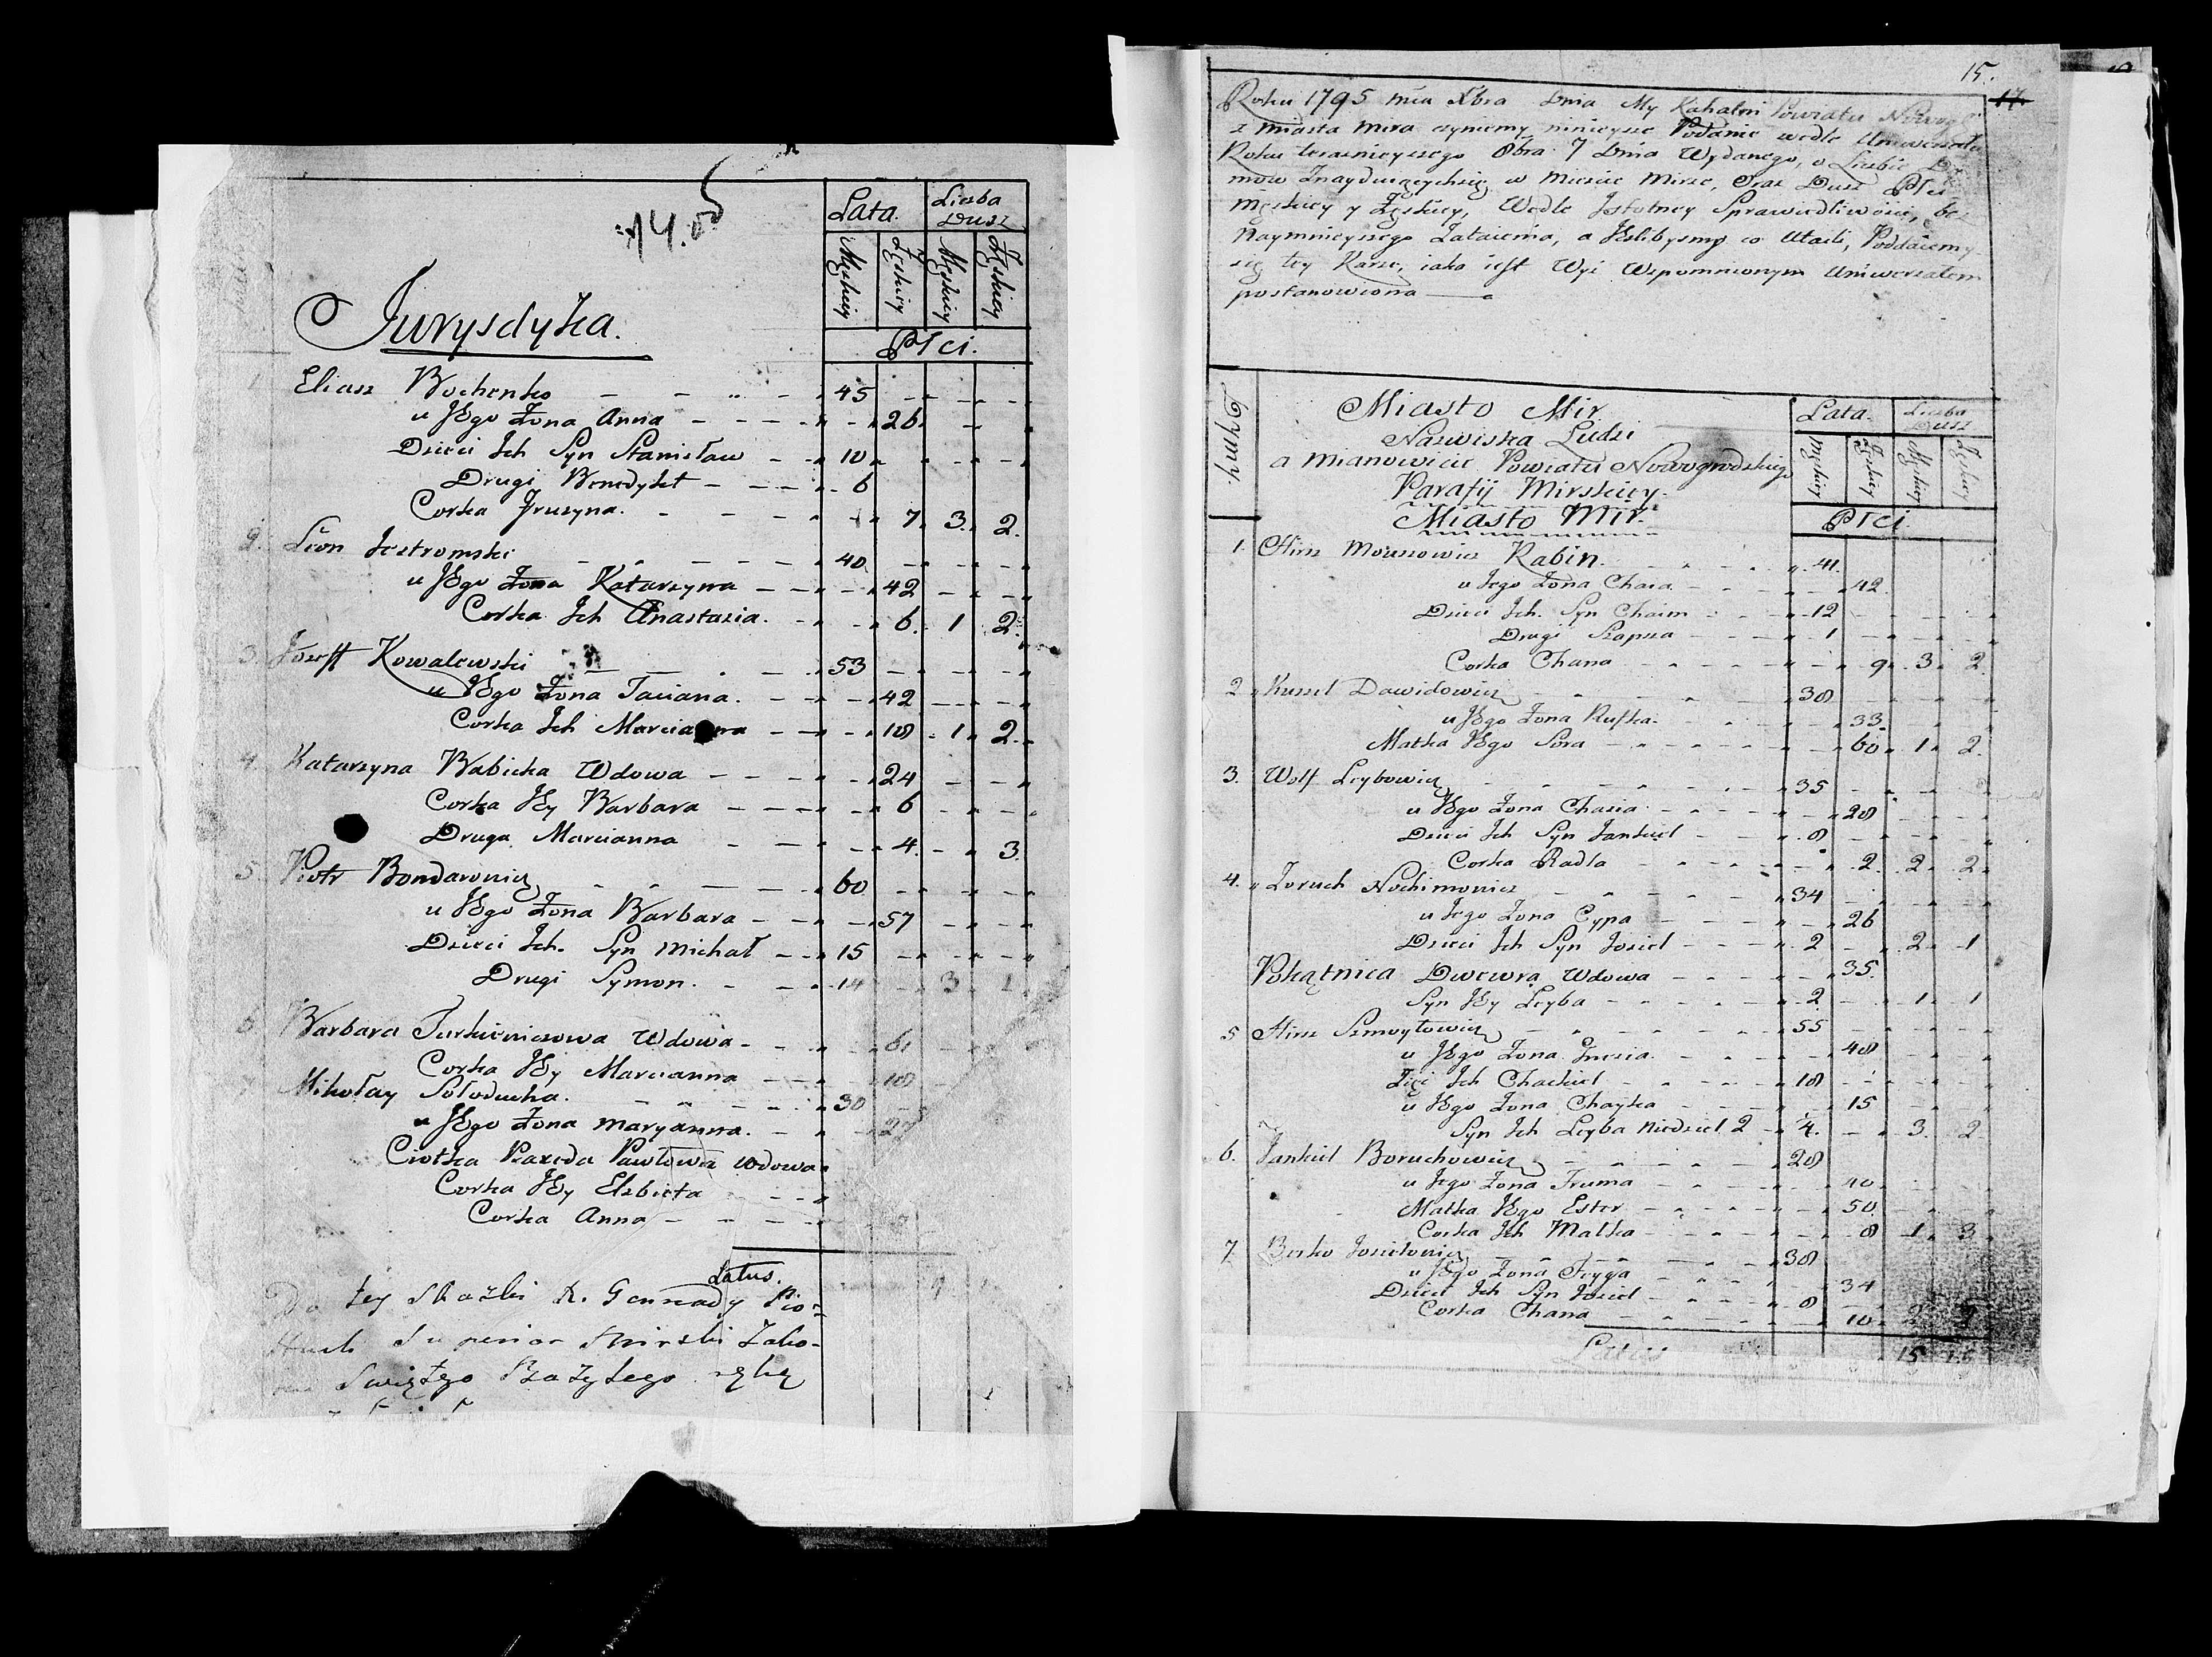 14.
Jurysdyka.
Lata. Liczba Dusz
Męskiey Żęskiey Męskiey Żęskiey
Płci.
1. Eliasz Bochenko 45
u Jego Żona Anna 26
Dzieci Ich Syn Stanisław 10
Drugi Benedykt 6
Corka Jruszyna. 7. 3. 2.
2. Leon Jestromski 40
u Jego Żona Katarzyna 42
Corka Ich Anastazia. 6. 1 2.
3. Jozeff Kowalewski 53
u Jego Żona Taciana. 42
Corka Ich Marcianna 18 1. 2.
4. Katarzyna Babicka Wdowa 24
Corka Jey Barbara 6
Druga Marcianna 4. 3.
5. Piotr Bondarowicz 60.
u Jego Żona Barbara 57
Dzieci Ich. Syn Michał 15
Drugi Symon. 14 3. 1.
6 Barbara Turkiewiczowa Wdowa 61
Corka Jey Marcianna 18
7 Mikołay Sołoducha. 30
u Jego Żona Maryanna. 27
Ciotka Paxeda Pawłowa Wdowa
Corka Jey Elzbieta
Corka Anna
Latus. 9
Do tey Skazki X. Gennady
Superior Mirski Zako-
Swiętego Bazylego ręką
15.
17.
Roku 1795 mca Xbra Dnia My Kahalni Powiatu
z Miasta Mira czyniemy ninieysze Podanie wedle Uniwersału
Roku teraznieyszego 8bra 7 Dnia Wydanego, o Liczbie Dy-
mow Znayduiącychsię w Miescie Mirze, Oraz Dusz Płci
Męskiey y Żęskiey, Wedle Jstotney Sprawiedliwości, bez
Naymnieyszego Zataienia, a Jeslibysmy co Utaili, Poddaiemy
się tey Karze, iaka iest Wyż Wspomnionym Uniwersałem
postanowiona
Dymy.
Miasto Mir
Nazwiska Ludzi
a mianowicie Powiatu Nowogrodzkiego
Parafij Mirskiey.
Miasto Mir.
Lata. Liczba Dusz
Męskiey Żęskiey Męskiey Żęskiey
Płci.
1. Hirsz Mowszowicz Rabin. 41.
u Jego Żona Chaia 42.
Dzieci Ich. Syn Chaim 12
Drugi Szapsza 1
Corka Chana 9. 3. 2.
2 Kussel Dawidowicz 38
u Jego Żona Ryfka. 33.
Matka Jego Sora 60. 1. 2.
3. Wolf Leybowicz 35
u Jego Żona Chasia 28
Dzieci Ich Syn Jankiel 8
Corka Radla 2. 2. 2.
4. Zoruch Nochimowicz 34
u Jego Żona Cypa 26
Dzieci Ich Syn Josiel 2 2. 1
Pokątnica Dwewra Wdowa 35.
Syn Jey Leyba 2 1. 1
5 Hirsz Szmoytowicz 55
u Jego Żona Gnesia. 48
Zięć Ich Chackiel 18
u Jego Żona Chayka 15
Syn Ich Leyba Niedziel 2 ¼. 3. 2.
6. Jankiel Boruchowicz 28
u Jego Żona Fruma 40.
Matka Jego Ester 50.
Corka Ich Malka 8 1. 3.
7. Berko Josielowicz 38
u Jego Żona Feyga 34
Dzieci Ich Syn Josiel 8
Corka Chana 10. 2. 2
Latus 15